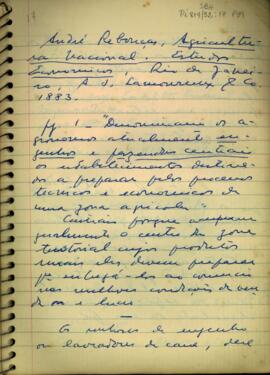 17
André Rebouças, Agricultu-
ra Nacional. Estudos
Economicos, Rio de Janei-
ro, A. J. Lamoureux & Co.
1883.
Pg 1 - "Denominam os a-
gronomos atualmente en-
genhos e fazendas centrais
os estabelecimentos destina-
dos a preparar pelos processos
technicos e economicos de
uma zona agricola"
Centrais porque occupam
geralmente o centro da zona
territorial cujos productos
ruraes elles devem preparar
pª entregá-los ao comercio
nas melhores condições de
e
Os senhores de engenho
ou lavradores de cana,